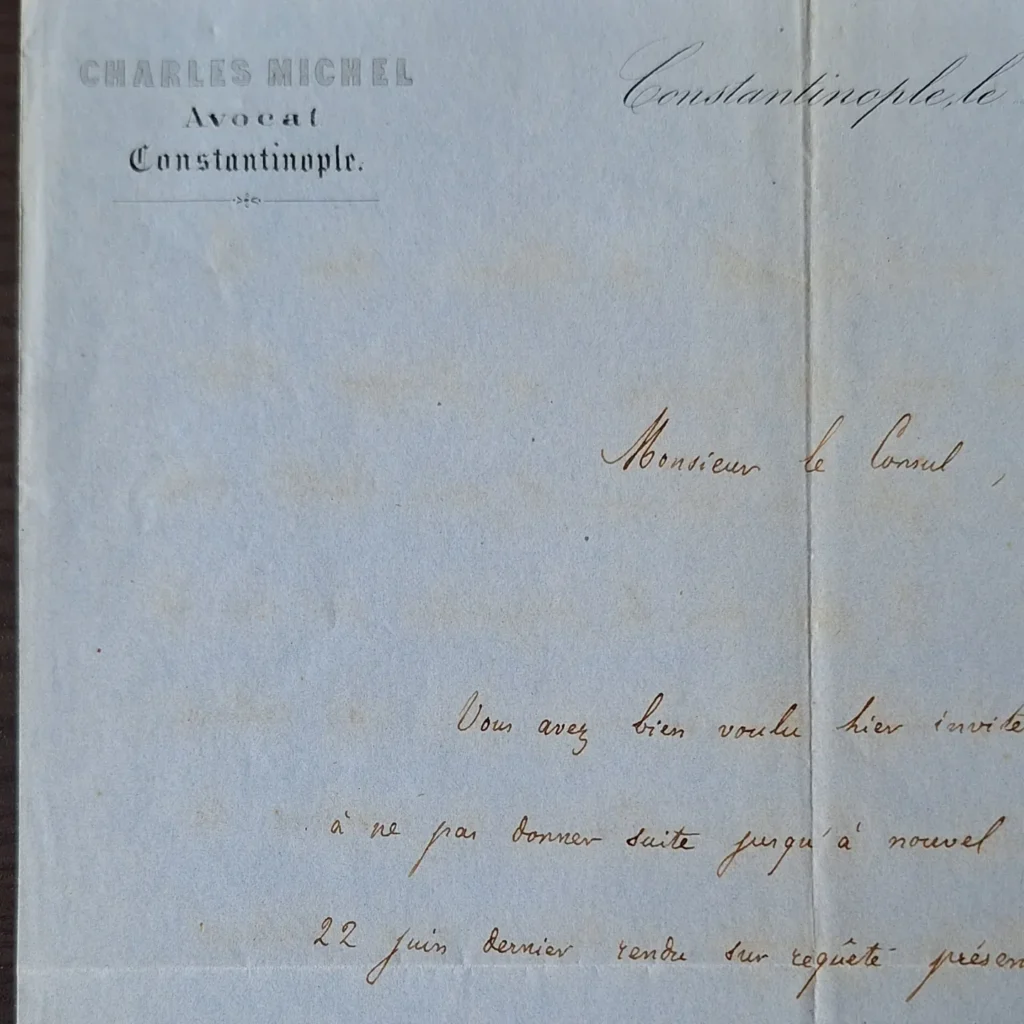 CHARLES MICHEL
Avocat
Constantinople.
Constantinople, le
Monsieur le Consul,
Vous avez bien voulu hier invite
à ne pas donner suite jusqu'à nouvel
22 juin dernier rendu sur requête présen